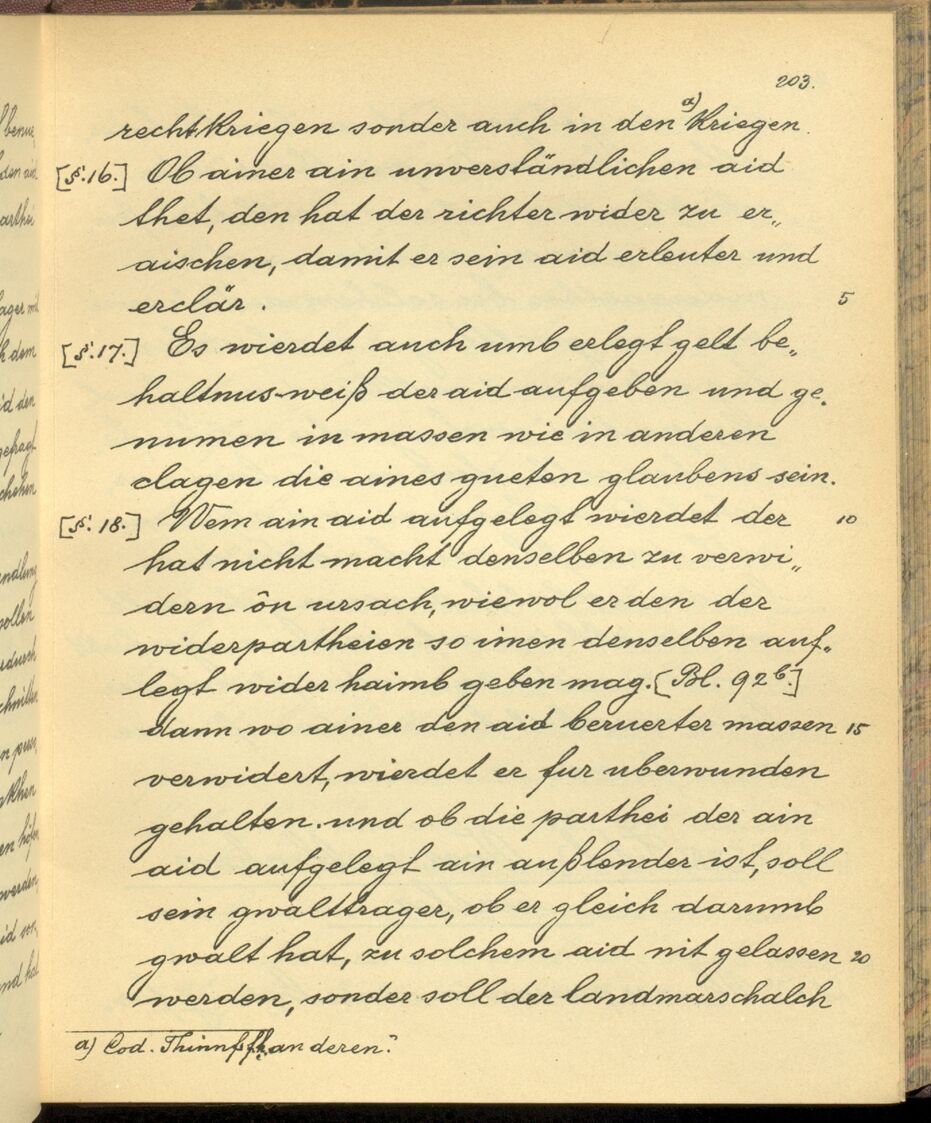 203.
rechtkriegen sonder auch in den a) kriegen.
[§.16.] Ob ainer ain unverständlichen aid
thet, den hat der richter wider zu er„
aischen, damit er sein aid erleuter und
erclär. 5
[§.17.] Es wierdet auch umb erlegt gelt be„
haltnus-weiß der aid aufgeben und ge„
numen in massen wie in anderen
clagen die aines gueten glaubens sein.
[§.18.] Wem ain aid aufgelegt wierdet der 10
hat nicht macht denselben zu verwi„
dern ôn ursach, wiewol er den der
widerpartheien so imen denselben auf„
legt wider haimb geben mag. [Bl. 92b.]
dann wo ainer den aid beruerter massen 15
verwidert, wierdet er fur uberwunden
gehalten. und ob die parthei der ain
aid aufgelegt ain außlender ist, soll
sein gwalttrager, ob er gleich darumb
gwalt hat, zu solchem aid nit gelassen 20
werden, sonder soll der landmarschalch
a) Cod. anderen?